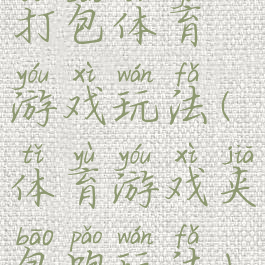 打包体育
yóu xì wán fǎ
游戏玩法(
tǐ yù yóu xì jiā
体育游戏夹
bāo pǎo wán fǎ
包跑玩法)